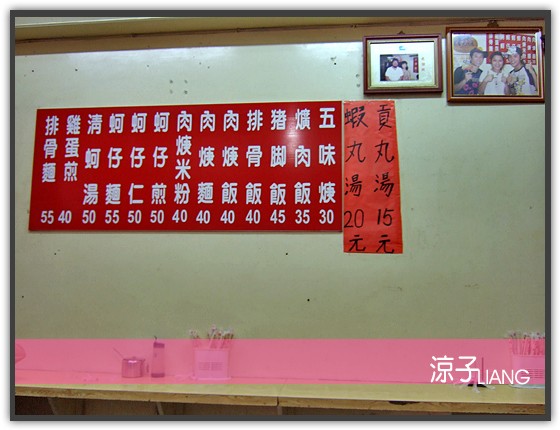 貢丸湯15元
蝦丸湯20元
五味焿 30
爌肉飯 35
猪脚飯 45
排骨飯 40
肉焿飯 40
肉焿麵 40
肉焿米粉 40
蚵仔煎 50
蚵仔仁 50
蚵仔麵 55
清蚵湯 50
雞蛋煎 40
排骨麵 55
涼子LIANG